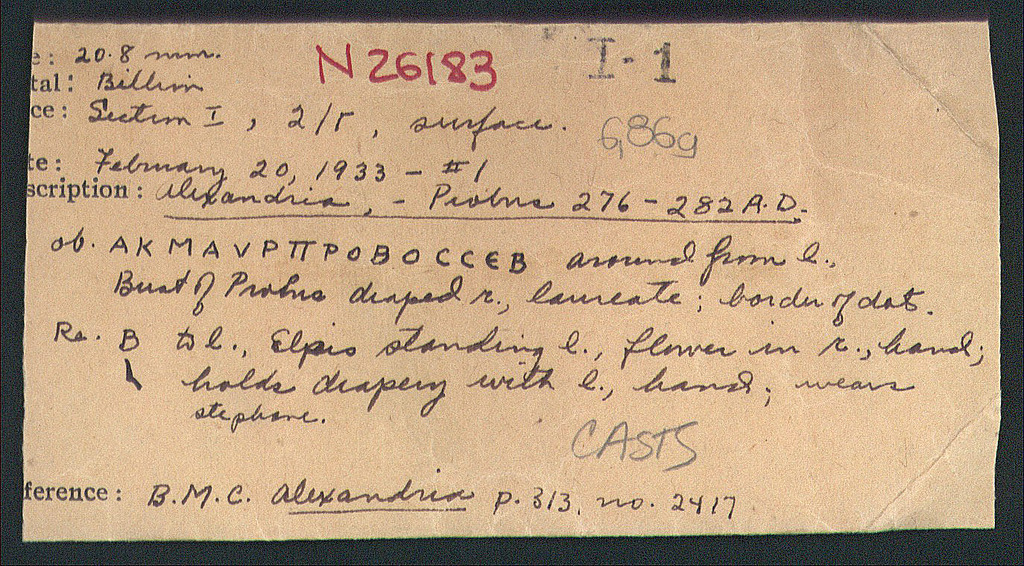 e: 20.8 mm.
N 26183
I-1
tal: Billon
ce: Section I, 2/Γ, surface.
6,86g
te: February 20, 1933 - #1
scription: Alexandria, - Probus 276-282 A.D.
ob. AKMAVPΠPOBOCCEB around from l.,
Bust of Probus draped r., laureate; border of dots.
Re. B to l., Elpis standing l., flower in r., hand;
holds drapery with l., hand; wears
stephane.
CASTS
ference: B.M.C. Alexandria p. 313. no. 2417